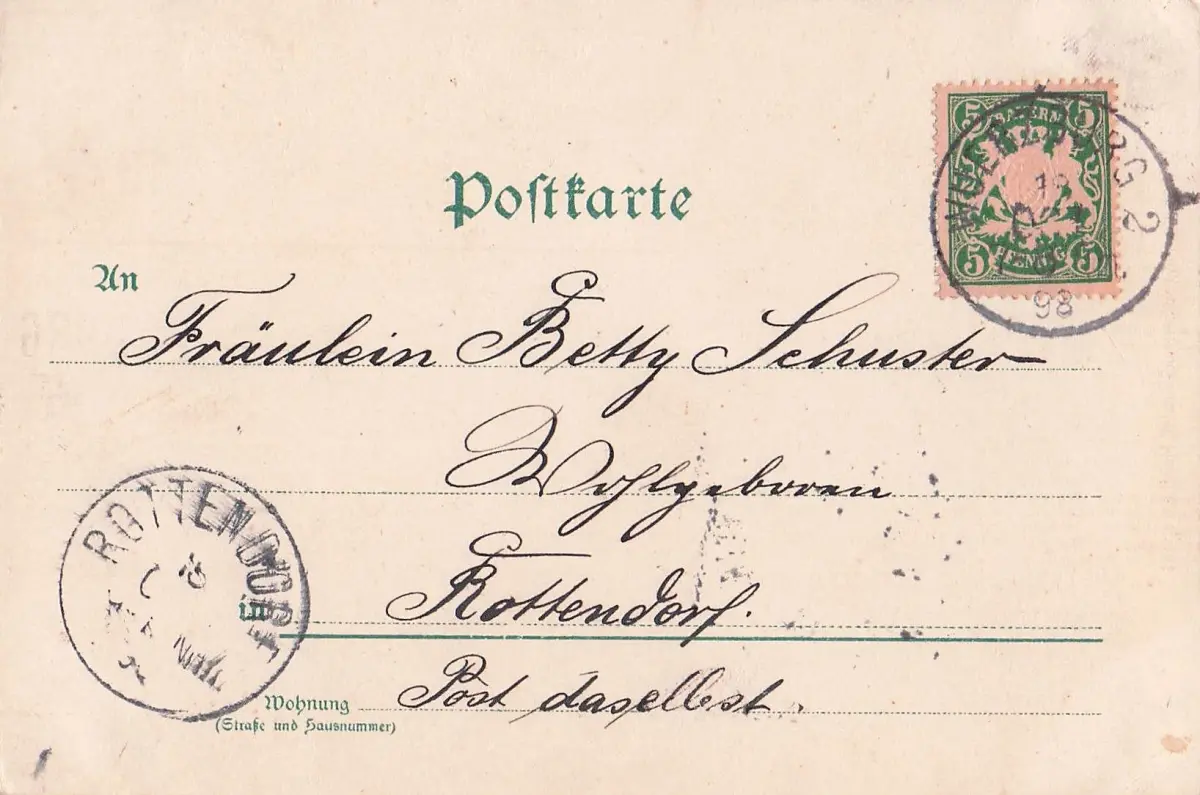 5 BAYERN 5
5 PFENNIG 5
WUERZBURG 2
98
Postkarte
An
Fräulein Betty Schuster
Wohlgeboren
ROTTENDORF
in Rottendorf.
Wohnung Post daselbst.
(Straße und Hausnummer)